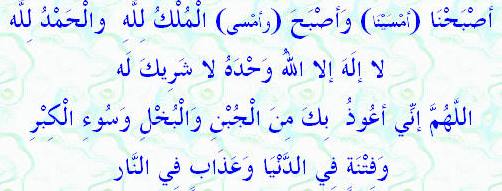 أصْبَحْنَا (أمْسَيْنا) وَأصْبَحَ (وأمْسى) الْمُلْكُ للَّهِ والْحَمْدُ للَّه
لا إلَهَ إلا اللهُ وَحْدَهُ لا شَرِيكَ لَه
اللَّهُمَّ إنِّي أعُوذُ بِكَ مِنَ الْجُبْنِ وَالْبُخْلِ وَسُوءِ الْكِبْرِ
وَفِتْنَةٍ فِي الدَّنْيَا وَعَذَابٍ فِي النَّار